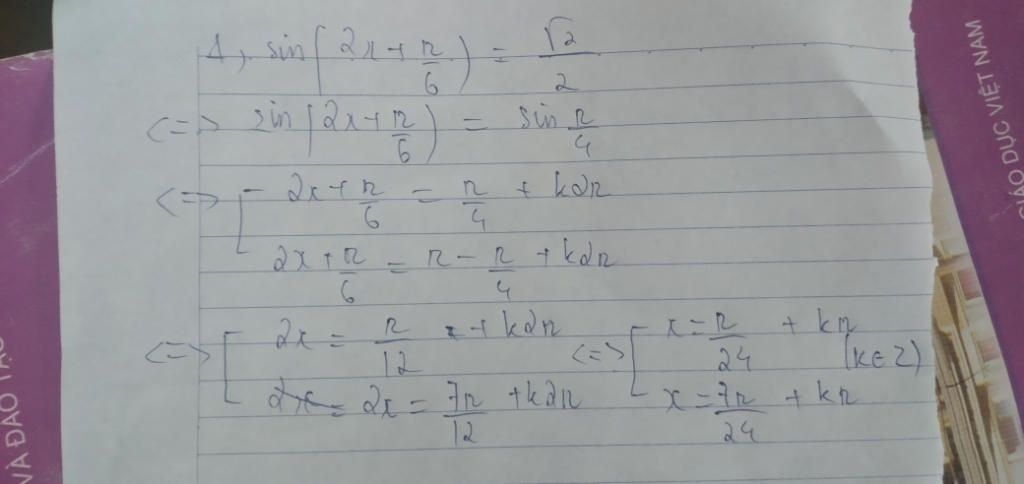 1, sin(2x+π/6) = √2/2
<=> sin(2x+π/6) = sin π/4
<=> [ 2x+π/6 = π/4 + k2π
2x+π/6 = π - π/4 + k2π
<=> [ 2x = π/12 + k2π <=> [ x = π/24 + kπ
(k∈Z)
2x = 7π/12 + k2π x = 7π/24 + kπ
GIÁO DỤC VIỆT NAM
VÀ ĐÀO TẠO